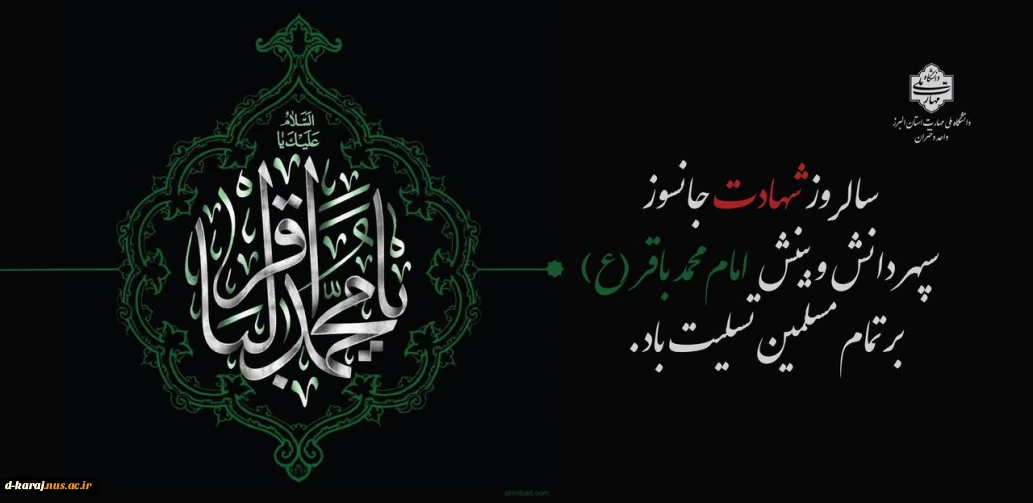 دانشگاه ملی مهارت
دانشگاه ملی مهارت استان البرز
واحد دختران
سالروز شهادت جانسوز
سپهر دانش و بینش امام محمد باقر (ع)
بر تمام مسلمین تسلیت باد.
السَّلامُ
عَلَيْكَ يا
یا محمد الباقر
d-karaj.nus.ac.ir